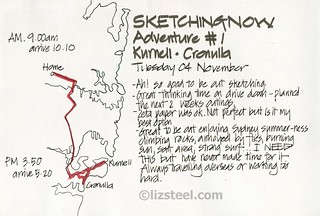 SKETCHINGNOW
Adventure #1
Kurnell · Cronulla
Tuesday 04 November
AM. 9.00am
arrive 10.10
Home
PM 3.50
arrive 5.20
Kurnell
Cronulla
- Ah! so good to be out sketching
- Great thinking time on drive down - planned
the next 2 weeks outings.
- Zeta paper was ok. Not perfect but is it my
best option
- Great to be out enjoying Sydney summer-ness
climbing rocks, annoyed by flies, burning
sun, salt area, strong surf!! I NEED
this but have never made time for it.
Always travelling overseas or working too
hard.
©lizsteel.com